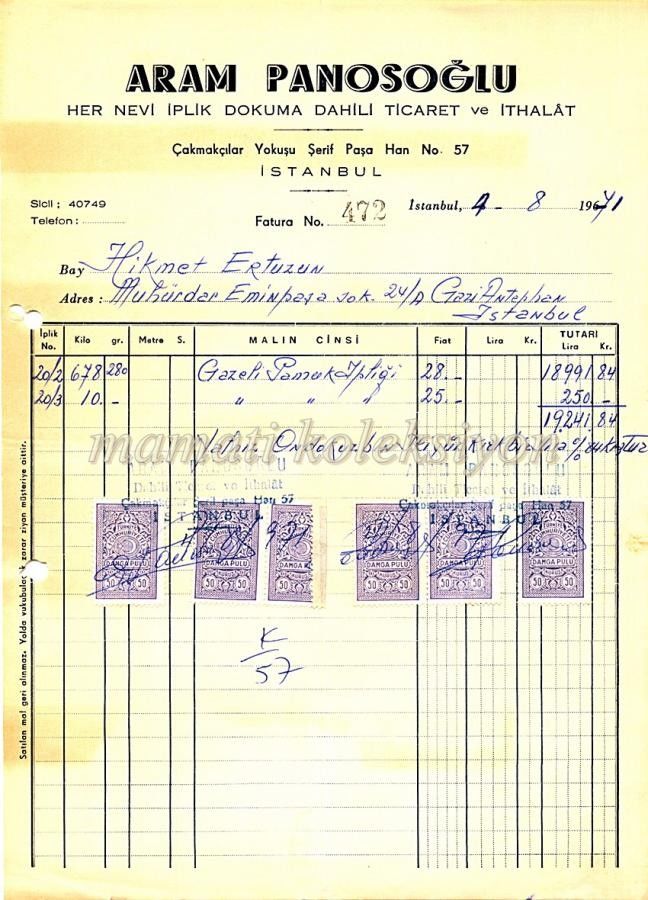 ARAM PANOSOĞLU
HER NEVİ İPLİK DOKUMA DAHİLİ TİCARET ve İTHALÂT
Çakmakçılar Yokuşu Şerif Paşa Han No. 57
İSTANBUL
Sicil : 40749
Telefon :
Fatura No. 472
İstanbul, 4 - 8 1971
Bay Hikmet Ertuzun
Adres : Muhürdar Eminpaşa sok. 24/A GaziAntephan
İstanbul
İplik No. Kilo gr. Metre S. MALIN CİNSİ Fiat Lira Kr. TUTARI Lira Kr.
20/2 678 280 Gazeli Pamuk İpliği 28.- 18991.84
20/3 10.- " " " 25.- 250.-
19.241.84
mamati koleksiyon
Dahili Ticaret ve İthalât
Çakmakçılar Şerif paşa Han 57
İSTANBUL
Dahili Ticaret ve İthalât
Çakmakçılar Şerif paşa Han 57
İSTANBUL
50 DAMGA PULU 50
50 DAMGA PULU 50
50 DAMGA PULU 50
50 DAMGA PULU 50
50 DAMGA PULU 50
50 DAMGA PULU 50
K
57
Satılan mal geri alınmaz. Yolda vukubulacak zarar ziyan müşteriye aittir.